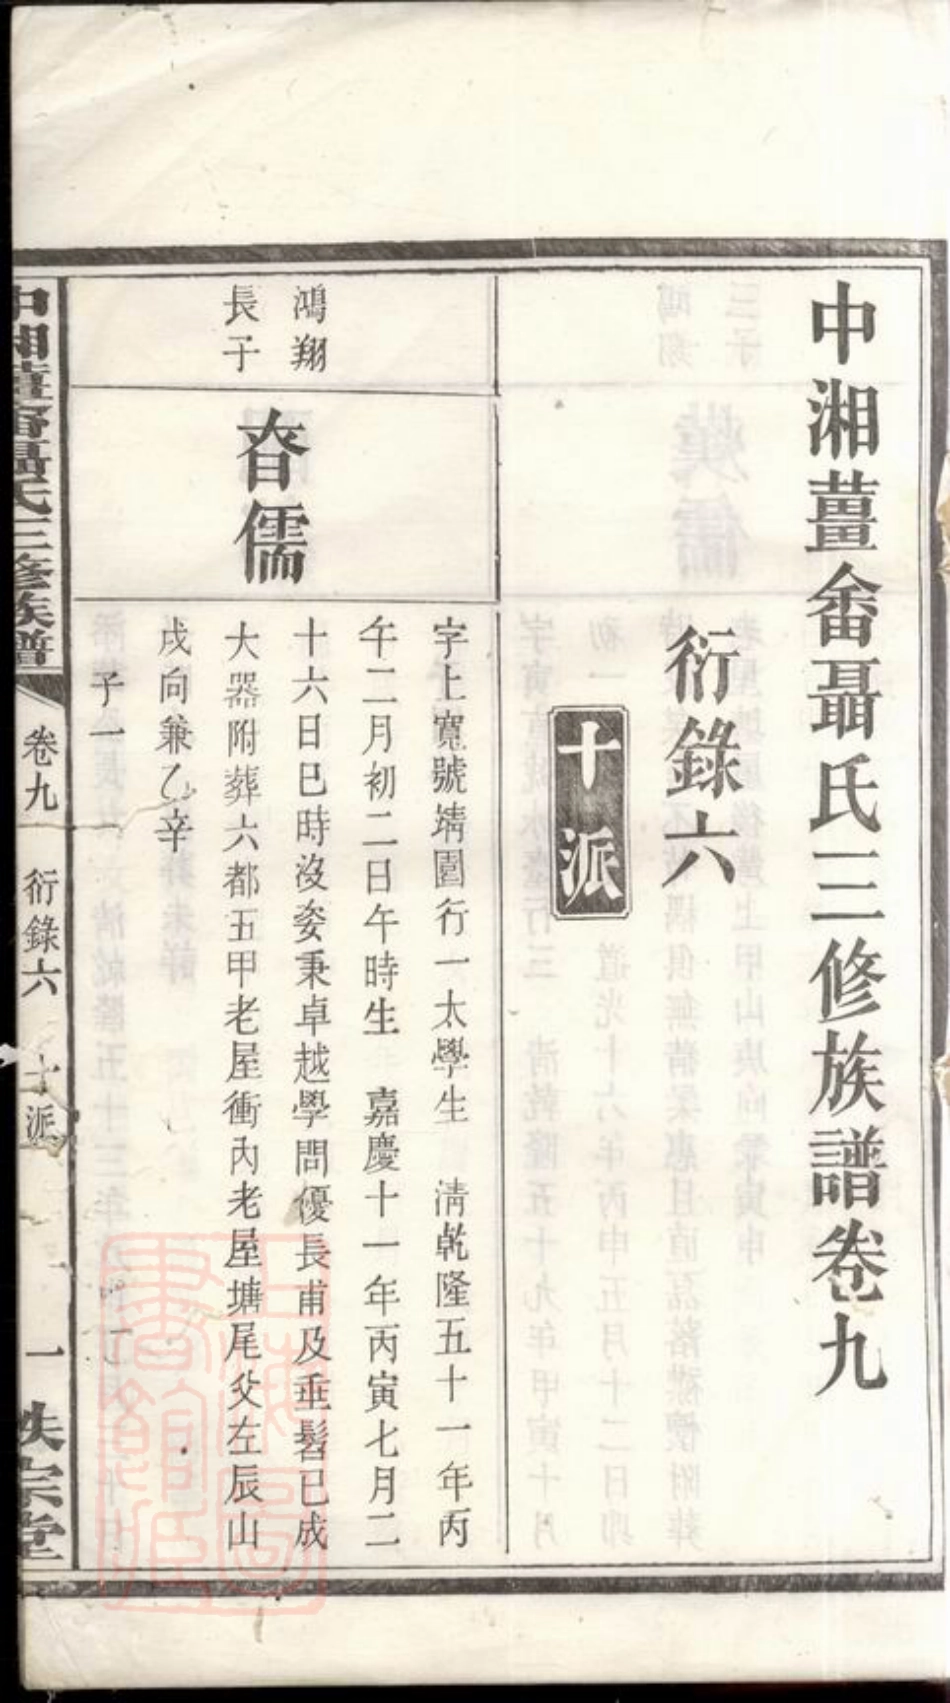 中湘薑畬聶氏三修族譜卷九
衍錄六
十派
鴻翔
長子
㫪儒
字上寬號靖園行一太學生　清乾隆五十一年丙
午二月初二日午時生　嘉慶十一年丙寅七月二
十六日巳時沒姿秉卓越學問優長甫及垂髫已成
大器附葬六都五甲老屋衝內老屋塘尾父左辰山
戌向兼乙辛
子一
中湘薑畬聶氏三修族譜
卷九
衍錄六
十派
一
秩宗堂